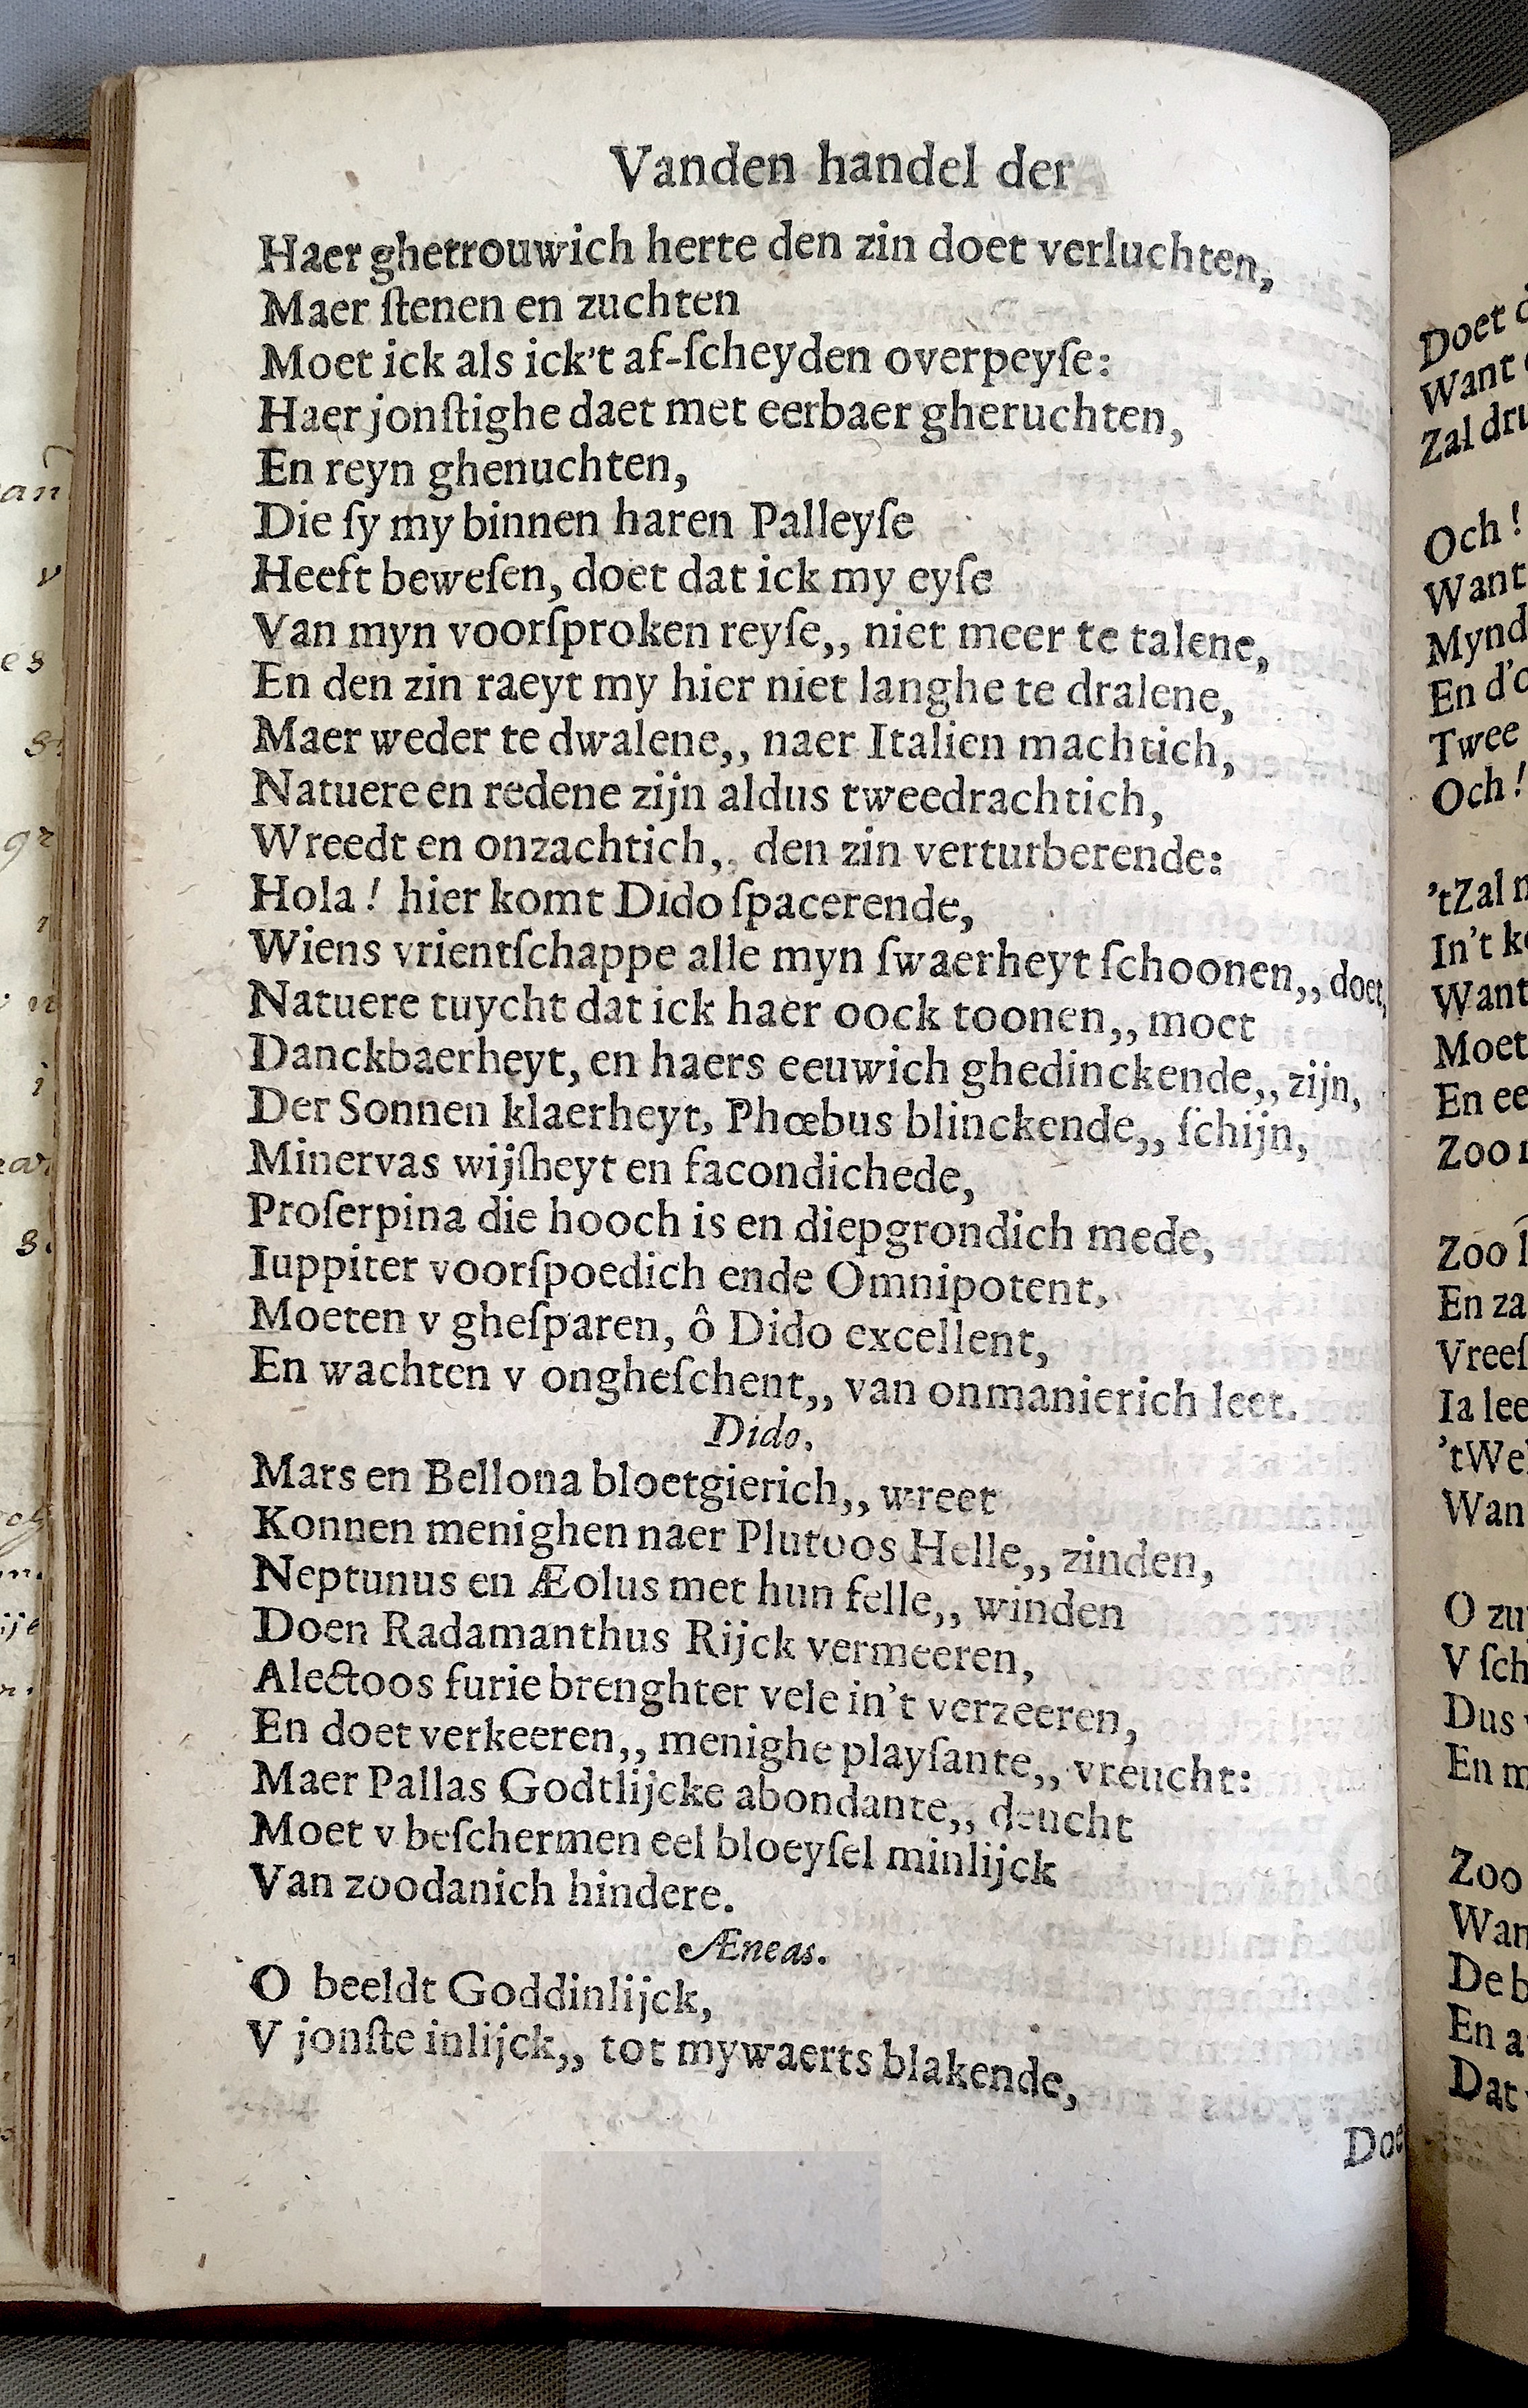 Vanden handel der
Haer ghetrouwich herte den zin doet verluchten,
Maer ſtenen en zuchten
Moet ick als ick't af-ſcheyden overpeyſe:
Haer jonſtighe daet met eerbaer gheruchten,
En reyn ghenuchten,
Die ſy my binnen haren Palleyſe
Heeft beweſen, doet dat ick my eyſe
Van myn voorſproken reyſe,, niet meer te talene,
En den zin raeyt my hier niet langhe te dralene,
Maer weder te dwalene,, naer Italien machtich,
Natuere en redene zijn aldus tweedrachtich,
Wreedt en onzachtich,, den zin verturberende:
Hola! hier komt Dido ſpacerende,
Wiens vrientſchappe alle myn ſwaerheyt ſchoonen,, doet,
Natuere tuycht dat ick haer oock toonen,, moet
Danckbaerheyt, en haers eeuwich ghedinckende,, zijn,
Der Sonnen klaerheyt, Phœbus blinckende,, ſchijn,
Minervas wijſheyt en facondichede,
Proſerpina die hooch is en diepgrondich mede,
Iuppiter voorſpoedich ende Omnipotent,
Moeten v gheſparen, ô Dido excellent,
En wachten v ongheſchent,, van onmanierich leet.
Dido.
Mars en Bellona bloetgierich,, wreet
Konnen menighen naer Plutoos Helle,, zinden,
Neptunus en Æolus met hun felle,, winden
Doen Radamanthus Rijck vermeeren,
Alectoos furie brenghter vele in't verzeeren,
En doet verkeeren,, menighe playſante,, vreucht:
Maer Pallas Godtlijcke abondante,, deucht
Moet v beſchermen eel bloeyſel minlijck
Van zoodanich hindere.
Æneas.
O beeldt Goddinlijck,
V jonſte inlijck,, tot mywaerts blakende,
Doe
Doet
Want
Zal dru
Och!
Want
Mynd
En d'o
Twee
Och!
'tZal
In't
Want
Moet
En ee
Zoo
Zoo
En za
Vreeſ
Ia lee
'tWe
Wan
O zu
V ſch
Dus
En m
Zoo
Wan
De b
En a
Dat